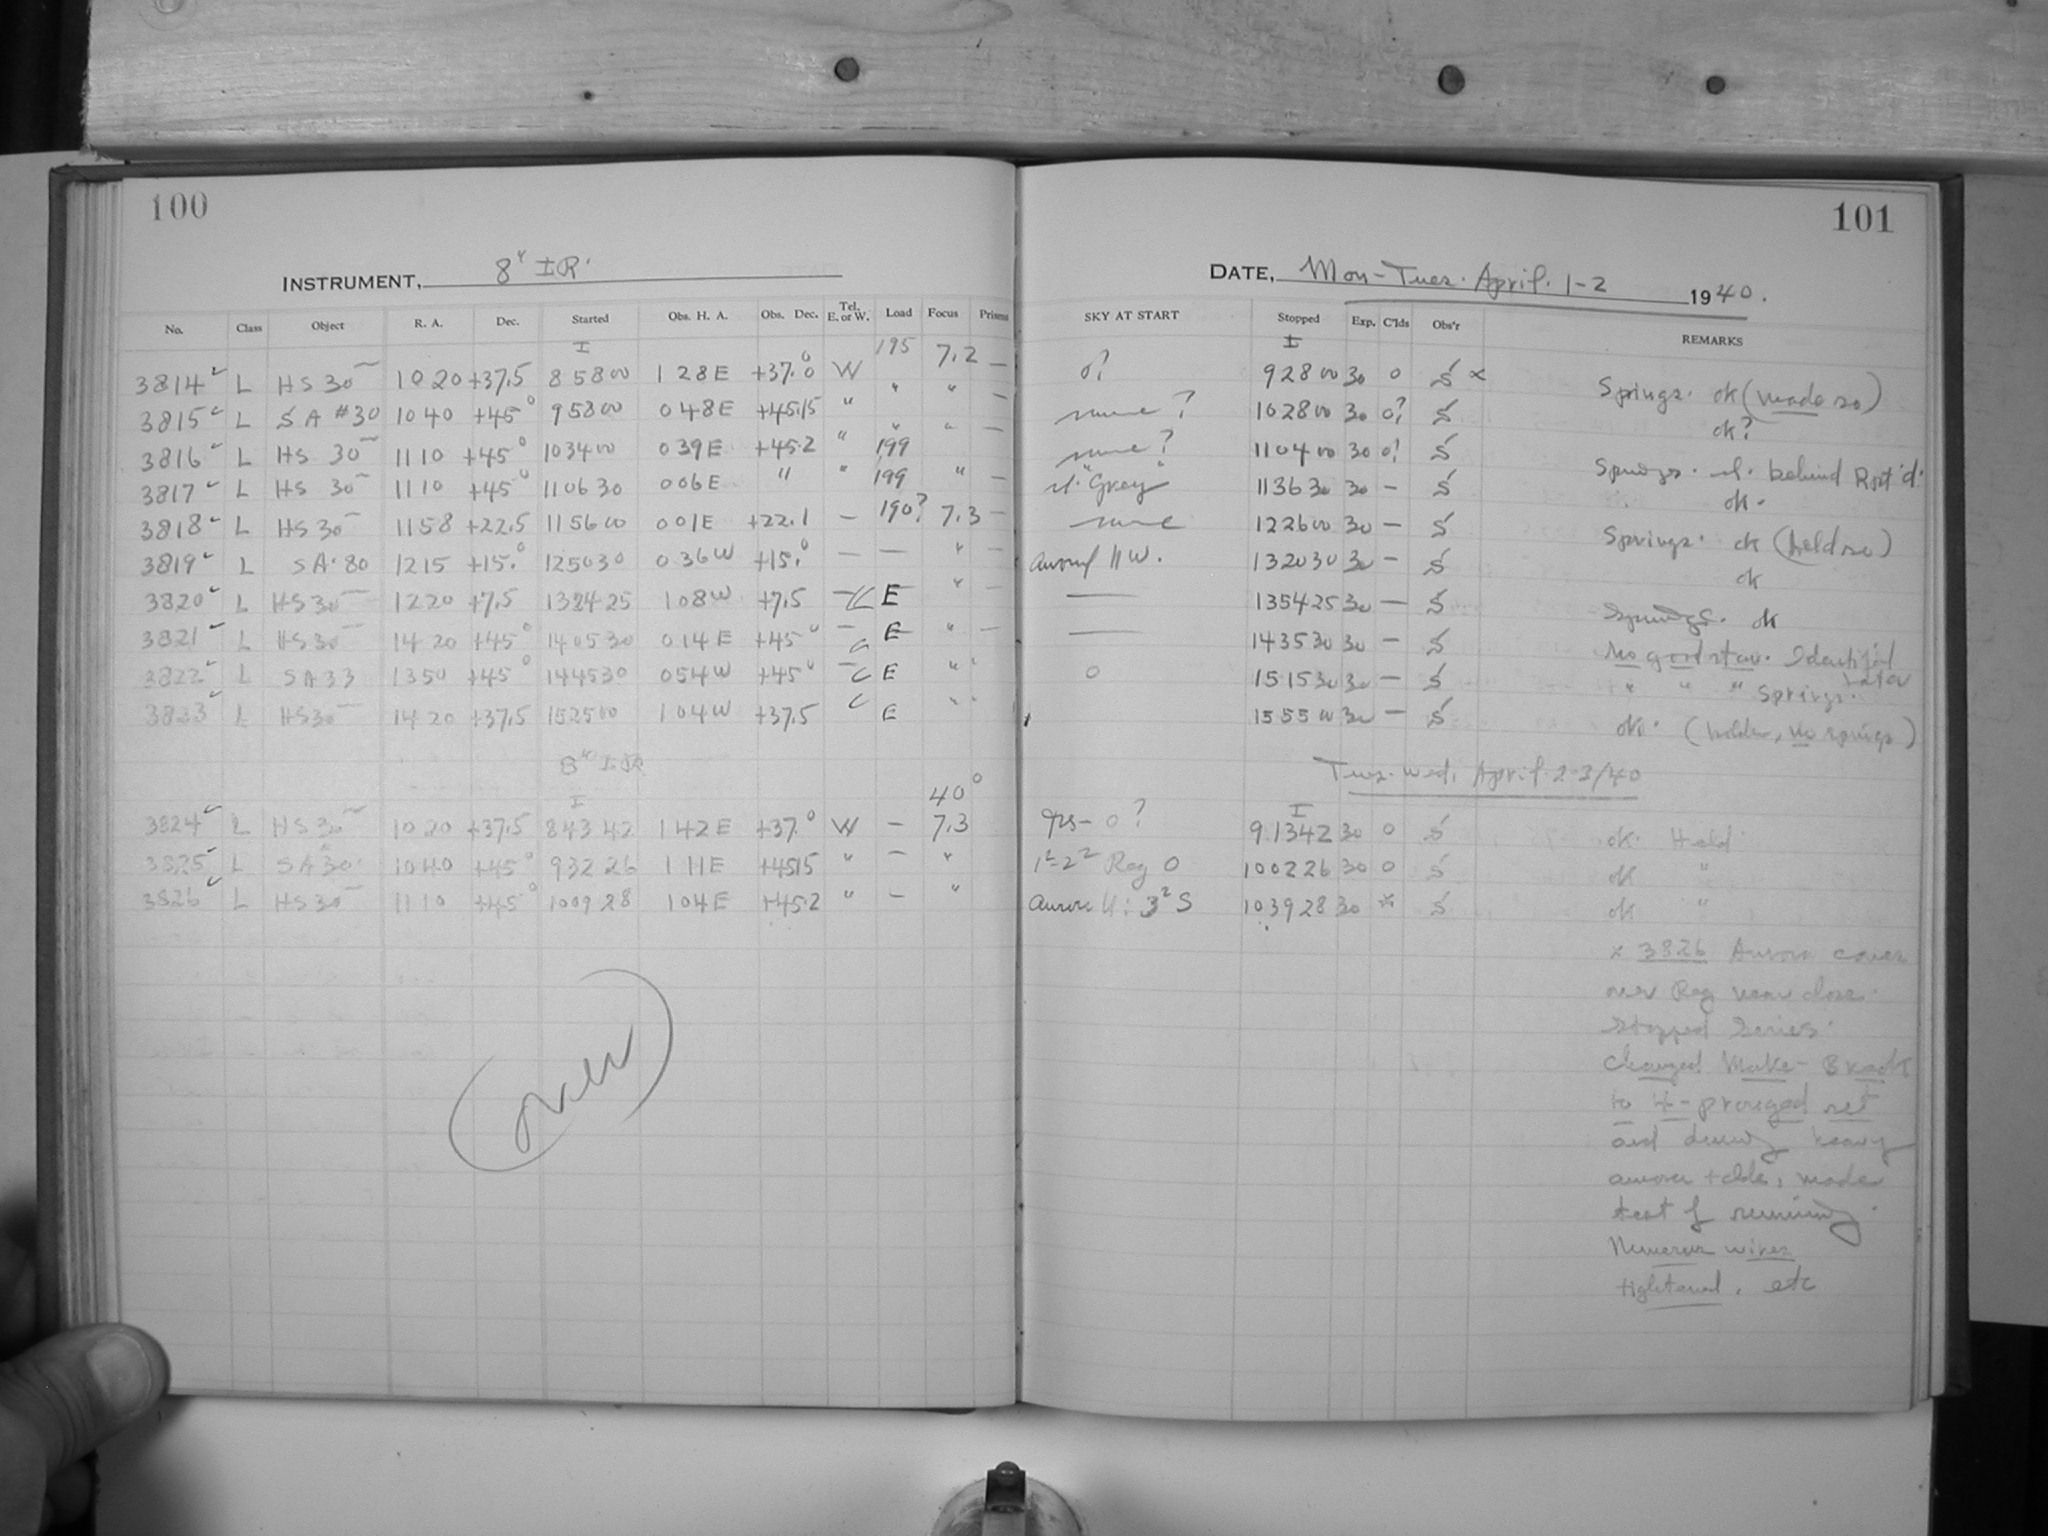 100
INSTRUMENT, 8" IR.
No. Class Object R. A. Dec. Started Obs. H. A. Obs. Dec. Tel. E. or W. Load Focus Prisms
I 195
3814 L HS 30 10 20 +37.5 8 58 00 1 28 E +37.0° W 7.2 —
3815 L SA #30 10 40 +45° 9 58 00 0 48 E +45.15 " " " —
3816 L HS 30 11 10 +45° 10 34 00 0 39 E +45.2 " 199 " —
3817 L HS 30 11 10 +45° 11 06 30 0 06 E " " 199 " —
3818 L HS 30 11 58 +22.5 11 56 00 0 01 E +22.1 — 190? 7.3 —
3819 L SA. 80 12 15 +15.° 12 50 30 0 36 W +15.° — — " —
3820 L HS 30 12 20 +7.5 13 24 25 1 08 W +7.5 — E " —
3821 L HS 30 14 20 +45° 14 05 30 0 14 E +45° — E " —
3822 L SA 33 13 50 +45° 14 45 30 0 54 W +45° — E "
3823 L HS 30 14 20 +37.5 15 25 00 1 04 W +37.5 E "
8" IR
I 40°
3824 L HS 30 10 20 +37.5 8 43 42 1 42 E +37.° W — 7.3
3825 L SA 30 10 40 +45° 9 32 26 1 11 E +45.15 " — "
3826 L HS 30 11 10 +45° 10 09 28 1 04 E +45.2 " — "
(over)
101
DATE, Mon-Tues. April. 1-2 1940.
SKY AT START Stopped Exp. C'lds Obs'r REMARKS
I
0? 9 28 00 30 0 S × Springs. ok (made so)
same? 10 28 00 30 0? S ok?
same? 11 04 00 30 0? S Springs. behind
"Grey" 11 36 30 30 — S ok.
same 12 26 00 30 — S Springs. ok (held so)
N W. 13 20 30 30 — S ok
— 13 54 25 30 — S Springs. ok
— 14 35 30 30 — S No good star. Identified later
0 15 15 30 30 — S " " " Springs.
15 55 00 30 — S ok. (holder, no springs)
Tues-Wed, April 2-3/40
I
0? 9 13 42 30 0 S ok. Held
Reg 0 10 02 26 30 0 S ok "
Aurora N: S 10 39 28 30 * S ok "
x 3826 Aurora comes
over Reg near close.
Stopped Series.
Changed Make-Break
to 4-pronged set
and during heavy
aurora + clds, made
test of running.
Numerous wires
tightened, etc